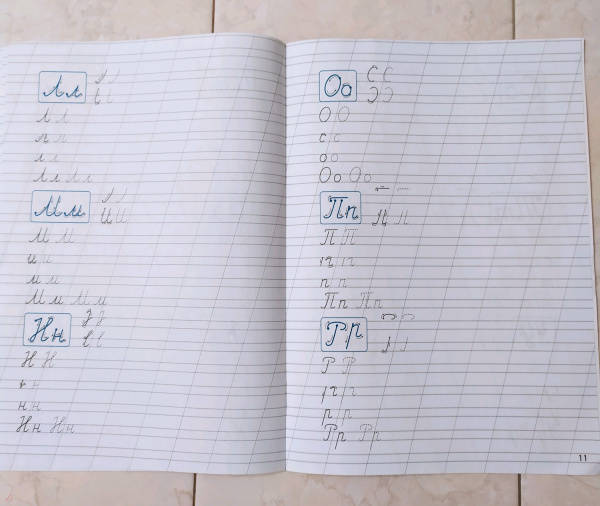 Лл
Л Л
л л
Лл Лл
Мм
М М
м м
Мм Мм
Нн
Н Н
н н
Нн Нн
Оо
О О
с с
о о
Оо Оо
Пп
П П
п п
Пп Пп
Рр
Р Р
р р
Рр Рр
11